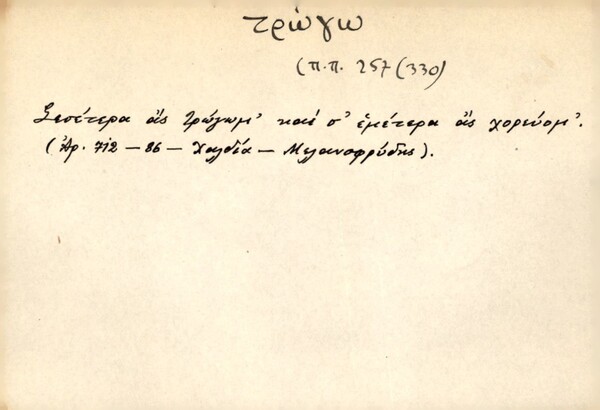 τρώγω
(π.π. 257 (330)
Σεσέτερα ἂς τρώγωμ' καὶ σ' ἐμέτερα ἂς χορεύομ'.
(Ἀρ. 712 – 86 – Χαλδία – Μελανοφρύδης).